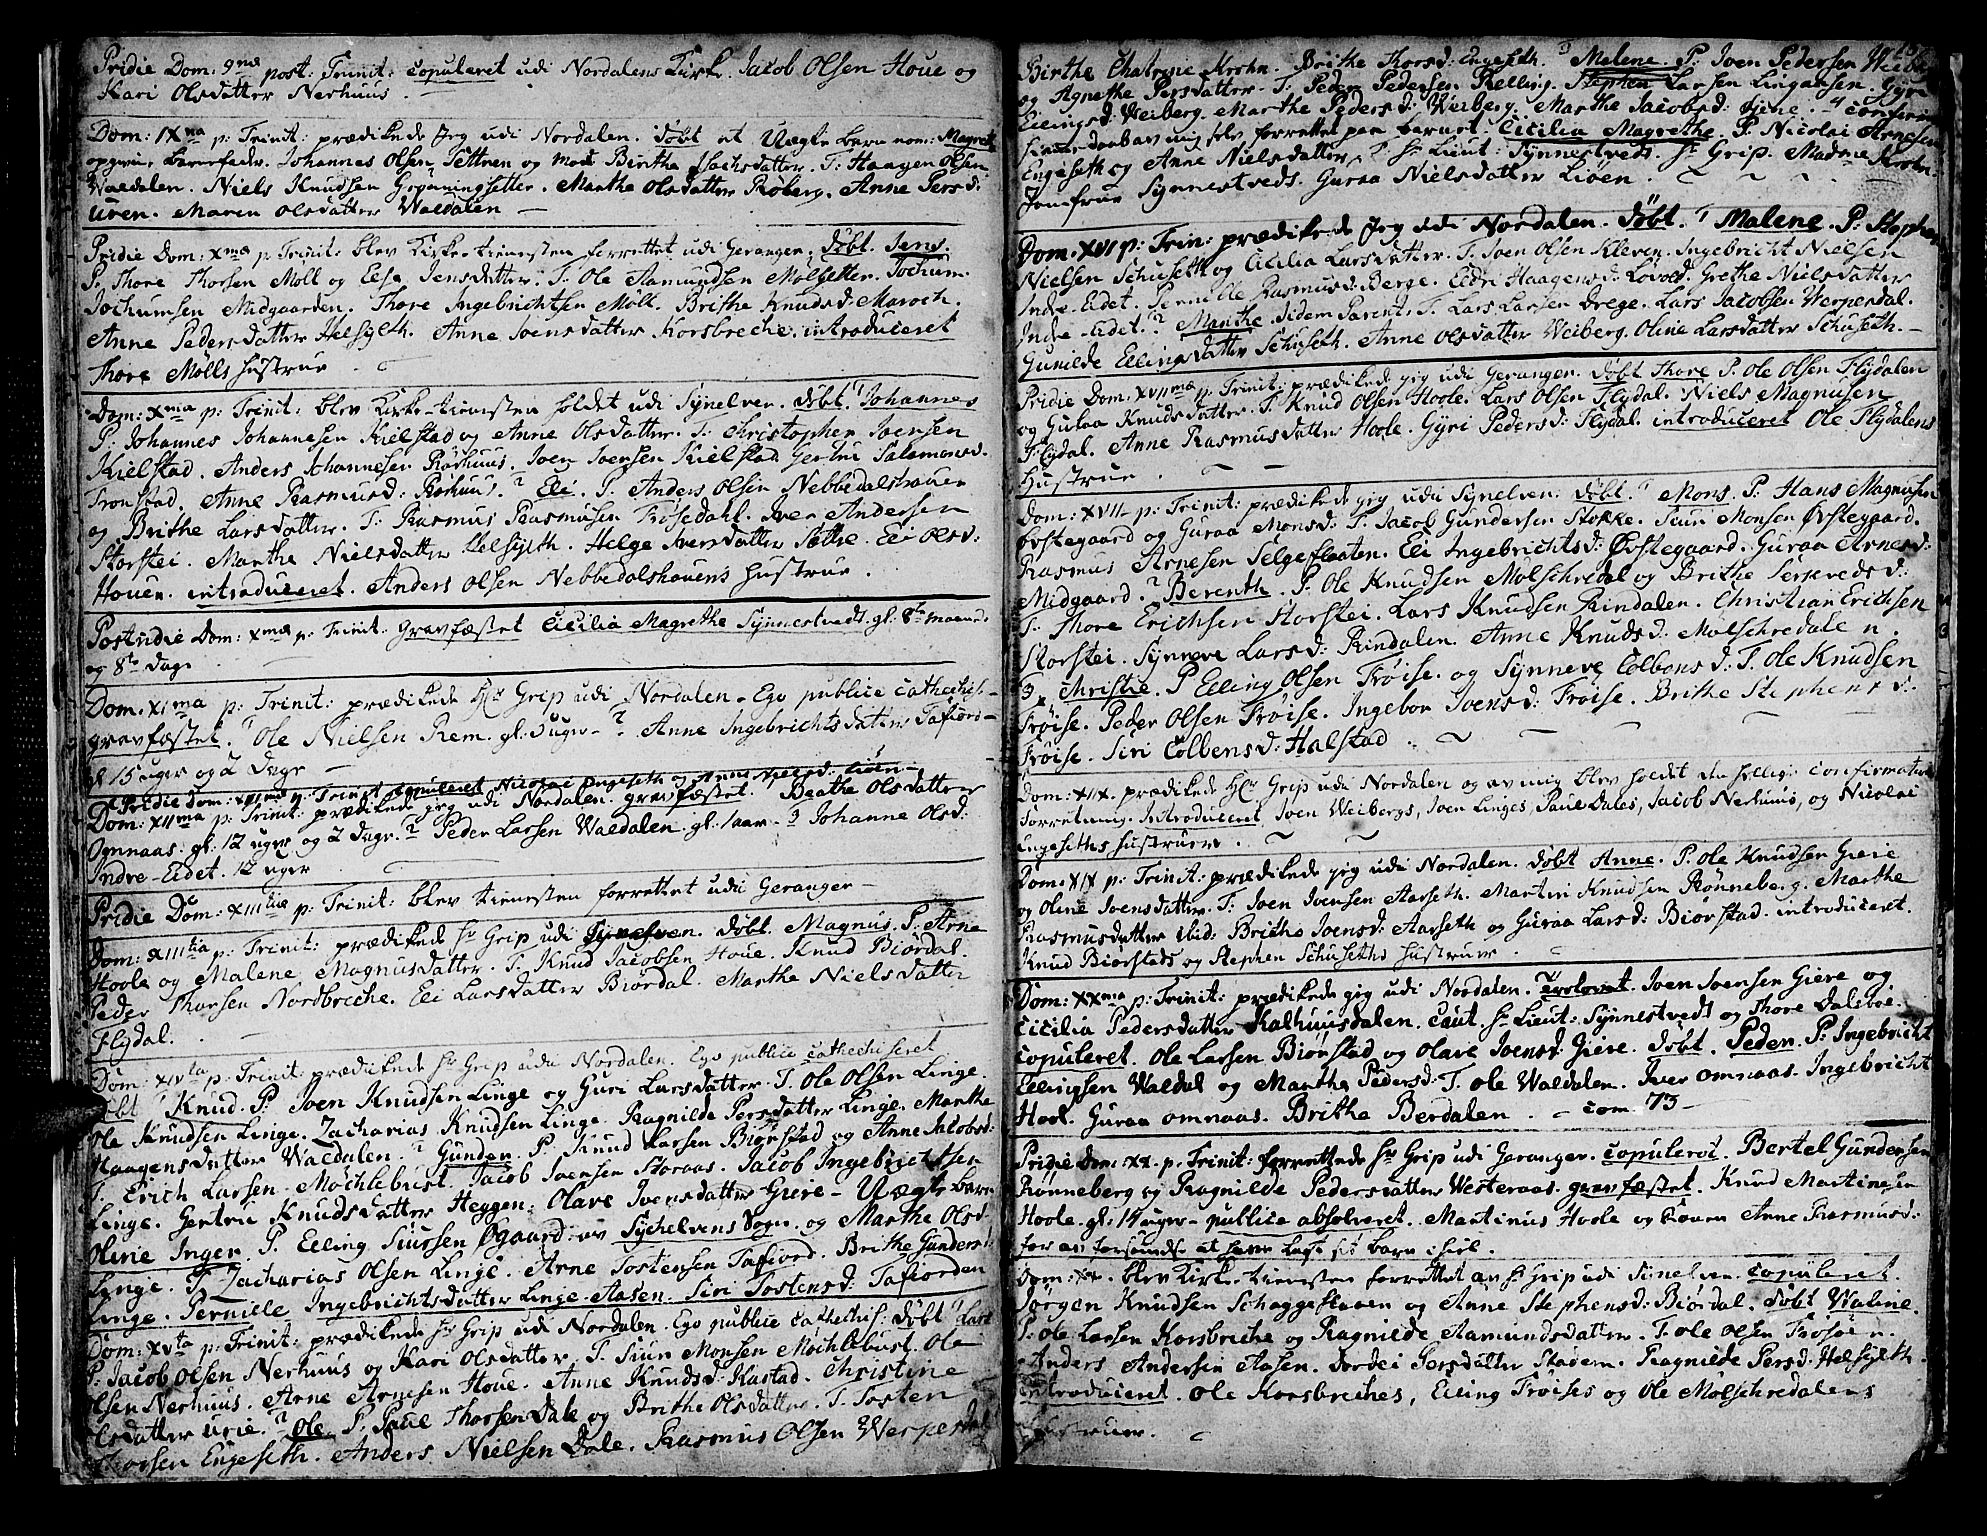 Pridie Dom: 9na post: Trinit: copuleret udi Nordalens Kirke. Jacob Olsen Houe og
Kari Olsdatter Nerhuus.
Dom: IXna p: Trinit: prædikede Jeg udi Nordalen. døbt et Uægte barn nom: Magret
opgivne barnefader. Johannes Olsen Settren og mod: Birthe Isachsdatter. T: Haagen Olsen
Waldalen. Niels Knudsen Grønningsetter. Marthe Olsdatter Roberg. Anne Persd:
Uren. Maren Olsdatter Waldalen
Pridie Dom: Xma p: Trinit: blev Kirke-tienesten forrettet udi Geranger. døbt. Jens.
P. Thore Thorsen Moll og Else Jensdatter. T: Ole Aamundsen Molsetter. Jochum
Jochumsen Midgaarden. Thore Ingebrichtsen Möll. Brithe Knudsd: Maroch.
Anne Pedersdatter Helsylth. Anne Joensdatter Korsbreche. introduceret
Thore Mölls Hustrue
Dom: Xma p: Trinit: blev Kirke-tienesten holdet udi Synelven. døbt. 1 Johannes
P: Johannes Johannesen Kielstad og Anne Olsdatter. T: Christopher Joensen
Kielstad. Anders Johannesen Rörhuus. Joen Joensen Kielstad. Gertru Salamonsd.
Fronstad. Anne Rasmusd: Rörhuus. 2 Eli. P. Anders Olsen Nebbedalshouen
og Brithe Larsdatter. T: Rasmus Rasmusen Frøsedahl. Iver Andersen
Storstei. Marthe Nielsdatter Helsylth. Helge Iversdatter Sæthe. Eli Olsd:
Houen. introduceret. Anders Olsen Nebbedalshouens Hustrue.
Postridie Dom: Xma p: Trinit: Gravfæstet Cicilia Magrethe Synnestvedt. gl. 8te maaned.
og 8te Dage
Dom: XIma p: Trinit: prædikede Hr Grip udi Nordalen. Ego publice cathechis-
gravfæstet. 1 Ole Nielsen Rem. gl. 3 uger 2 Anne Ingebrichtsdatter Tafiord
gl 15 uger og 2 Dage
Pridie Dom: XIIma p: Trinit copuleret Nicolai Engeseth og Anne Nielsd: Liöen
Dom: XIIma p: Trinit: prædikede jeg udi Nordalen. gravfæstet. 1 Beathe Olsdatter
Omnaas. gl: 12 uger og 2 Dage. 2 Peder Larsen Waldalen. gl. 1 aar 3 Johanne Olsd:
Indre-Eidet. 12 uger
Pridie Dom: XIIItia p: Trinit: blev tienesten forrettet udi Geranger
Dom: XIIItia p: Trinit: prædikede Hr Grip udi Synelven. døbt. Magnus. P: Arne
Hoole og Malene Magnusdatter. T. Knud Jacobsen Houe. Knud Biørdal.
Peder Thorsen Nordbreche. Eli Larsdatter Biørdal. Marthe Nielsdatter
Flydal.
Dom: XIVta p: Trinit: prædikede Hr Grip udi Nordalen. Ego publice cathechiseret
døbt 1 Knud. P: Joen Knudsen Linge og Guri Larsdatter. T. Ole Olsen Linge.
Ole Knudsen Linge. Zacharias Knudsen Linge. Ragnilde Persdatter Linge. Marthe
Haagensdatter Waldalen. 2 Gunder. P. Knud Larsen Biørstad og Anne Jacobsd:
T. Erich Larsen. Möchlebust. Jacob Joensen Storaas. Jacob Ingebrichtsen
Linge. Gertru Knudsdatter Heggen. Olave Joensdatter Giere. Uægte barn
Oline Inger P. Elling Siursen Øgaard av Sychelvens Sogn. og Marthe Olsd:
Linge. T. Zacharias Olsen Linge. Arne Tostensen Tafiord. Brithe Gundersd:
Linge. Pernille Ingebrichtsdatter Linge-Aasen. Siri Tostensd: Tafiorden
Dom: XVta p: Trinit: prædikede Hr Grip udi Nordalen. Ego publice cathechis: døbt 1 Lars
P. Jacob Olsen Nerhuus og Kari Olsdatter. T. Siur Monsen Möchlebust. Ole
Olsen Nerhuus. Arne Arnesen Houe. Anne Knudsd: Kastad. Christine
Olsdatter Urie. 2 Ole P. Paul Thorsen Dale og Brithe Olsdatter. T. Tosten
Thorsen Engeseth. Anders Nielsen Dale. Rasmus Olsen Werpesdal
Birthe Chatrine Krohn. Brithe Thorsd: Engeseth. 3 Malene. P. Joen Pedersen Weiberg
og Agnethe Persdatter. T: Peder Pedersen Relling. Stephen Larsen Lingaasen. Gyri
Ellingsd: Weiberg. Marthe Pedersd: Weiberg. Marthe Jacobsd: Giere.
av mig selv forrettet paa barnet. Cicilia Magrethe. P. Nicolai Arnesen
Engeseth og Anne Nielsdatter. T Hr Lieut: Synnestvedt. Hr Grip. Madme Krohn.
Jomfrue Synnestveds. Guraa Nielsdatter Liöen.
Dom: XVI p: Trin: prædikede Jeg udi Nordalen. døbt. 1 Malene. P: Stephen
Nielsen Schuseth og Cicilia Larsdatter. T. Joen Olsen Kleven. Ingebricht Nielsen
Indre-Eidet. Pernille Rasmusd: Berge. Eldri Haagensd: Lövold. Grethe Nielsdatter
Indre-Eidet. 2 Marthe. idem Parent. T. Lars Larsen Drege. Lars Jacobsen Werpesdal.
Gunilde Ellingsdatter Schuseth. Anne Olsdatter Weiberg. Oline Larsdatter Schuseth.
Pridie Dom: XVIIma p: Trinit: prædikede jeg udi Geranger. døbt Thore P. Ole Olsen Flydalen
og Guraa Knudsdatter. T. Knud Olsen Hoole. Lars Olsen Flydal. Niels Magnusen
Flydal. Anne Rasmusdatter Hoole. Gyri Pedersd: Flydal. introduceret Ole Flydalens
Hustrue
Dom: XVII p: Trinit: prædikede jeg udi Synelven: døbt. 1 Mons. P: Hans Magnusen
Øvstegaard og Guraa Monsd: T. Jacob Gundersen Stokke. Siur Monsen Øvstegaard.
Rasmus Arnesen Selgeflaaten. Eli Ingebrichtsd: Øvstegaard. Guraa Arnesd:
Midgaard. 2 Berenth. P. Ole Knudsen Molschredal og Brithe Sersvedsd:
T: Thore Erichsen Storstei. Lars Knudsen Rindalen. Christian Erichsen
Storstei. Synneve Larsd: Rindalen. Anne Knudsd: Molschredalen.
3 Christie. P Elling Olsen Frøise. og Synneve Colbensd: T. Ole Knudsen
Frøise. Peder Olsen Frøise. Ingebor Joensd: Frøise. Brithe Stephensd:
Frøise. Siri Colbensd: Halstad.
Dom: XIIX. prædikede Hr Grip udi Nordalen og av mig blev holdet den hellige confirmations
forretning. Introduceret Joen Weibergs, Joen Linges, Paul Dales, Jacob Nerhuus, og Nicolai
Engeseths Hustruer.
Dom: XIX p: Trinit: prædikede jeg udi Nordalen. døbt Anne. P. Ole Knudsen Giere
og Oline Joensdatter. T: Joen Joensen Aarseth. Martin Knudsen Rönneberg. Marthe
Rasmusdatter ibid: Brithe Joensd: Aarseth og Guraa Larsd: Biørstad. introduceret.
Knud Biørstads og Stephen Schuseths Hustruer.
Dom: XXma p: Trinit: prædikede jeg udi Nordalen. Trolovet. Joen Joensen Giere og
Cicilia Pedersdatter Kalhuusdalen. Caut. Hr Lieut: Synnestvedt og Thore Dalsboe.
Copuleret. Ole Larsen Biørstad og Olave Joensd: Giere. døbt. Peder. P: Ingebricht
Ellingsen Waldal og Marthe Pedersd: T. Ole Waldalen. Iver Omnaas. Ingebricht
Hoel. Guraa Omnaas. Brithe Berdalen. com. 73
Pridie Dom: XX. p. Trinit: forrettede Hr Grip udi Geranger. copuleret. Bertel Gundersen
Rønneberg og Ragnilde Pedersdatter Westeraas. gravfæstet. Knud Martinesen
Hoole. gl: 14 uger publice absolveret. Martinus Hoole og Konen Anne Rasmusd:
for at forsømelse at have lagt sit barn ihiel.
Dom: XX. blev Kirke-tienesten forrettet av Hr Grip udi Synelven. copuleret.
Jörgen Knudsen Schaggeflaaen og Anne Stephensd: Biørdal. døbt Waline.
P: Ole Larsen Korsbreche og Ragnilde Aamundsdatter. T. Ole Olsen Frösöen.
Anders Andersen Aasen. Jordei Persdatter Stadem. Ragnilde Persd: Helsylth.
introduceret. Ole Korsbreches, Elling Frøises og Ole Molschredalens
Hustruer.